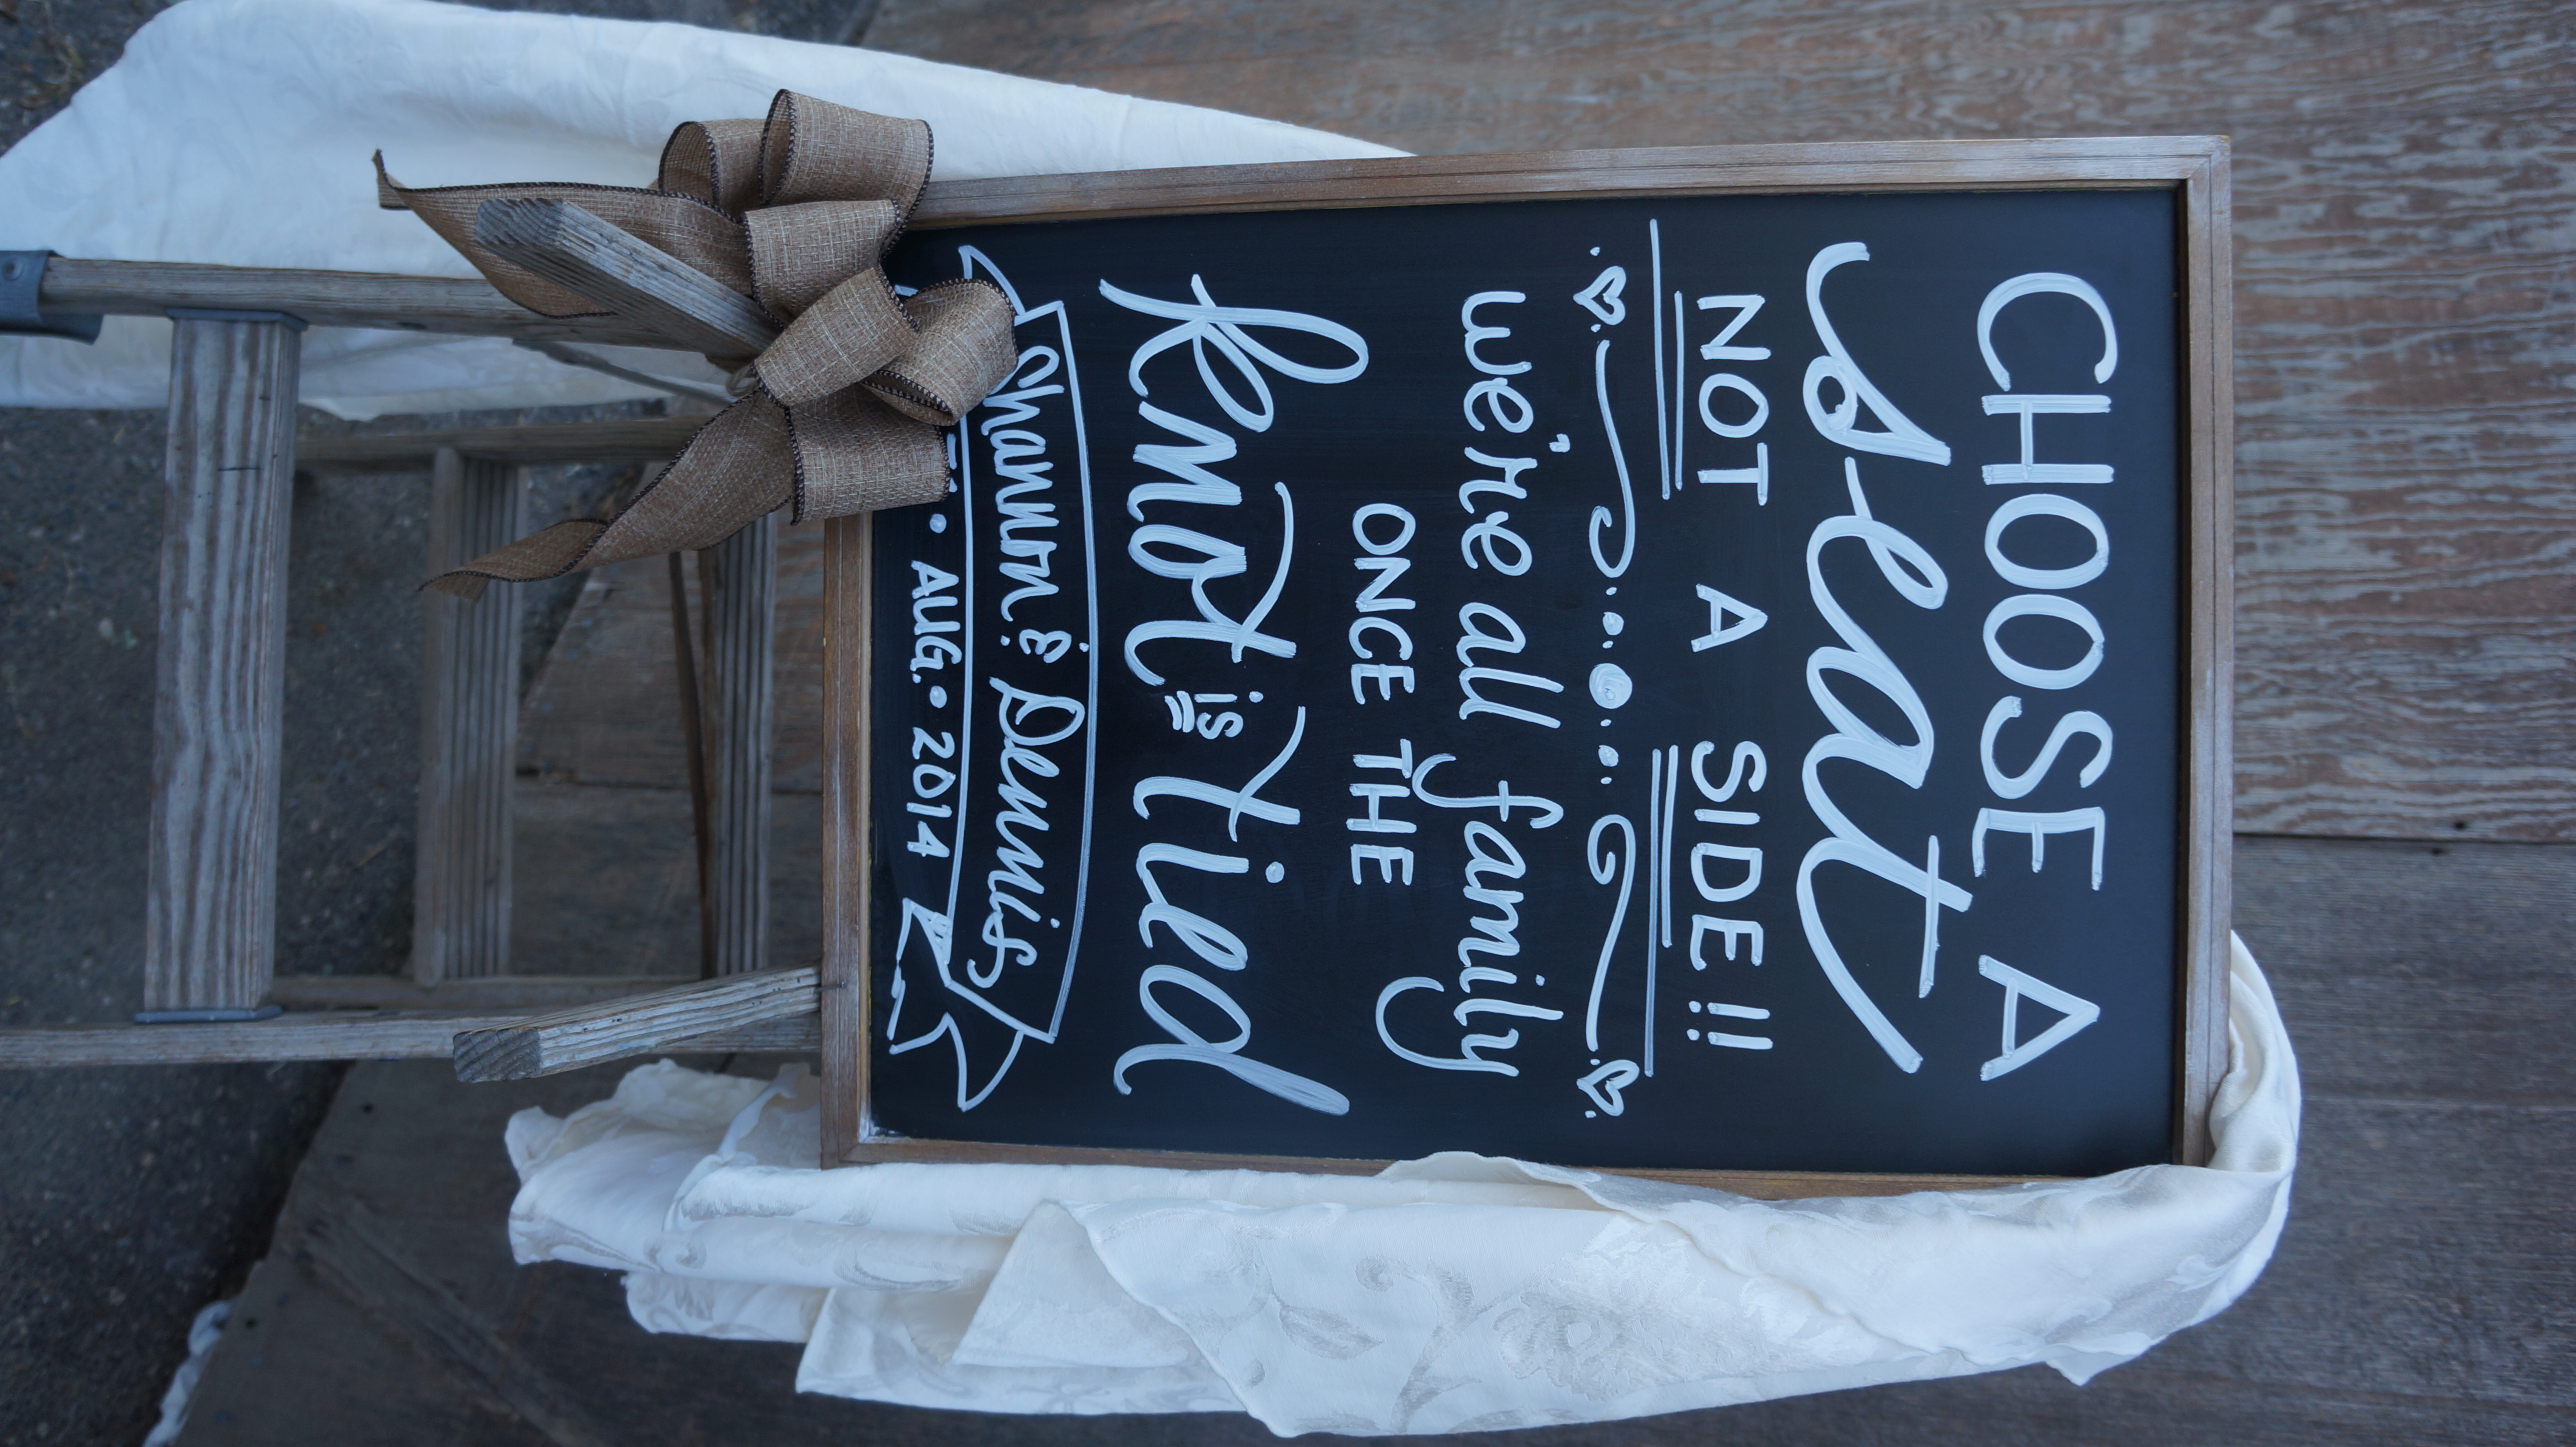 CHOOSE A
seat
NOT A SIDE!!
we're all family
ONCE THE
knot is tied
Shannon & Dennis
• AUG. • 2014